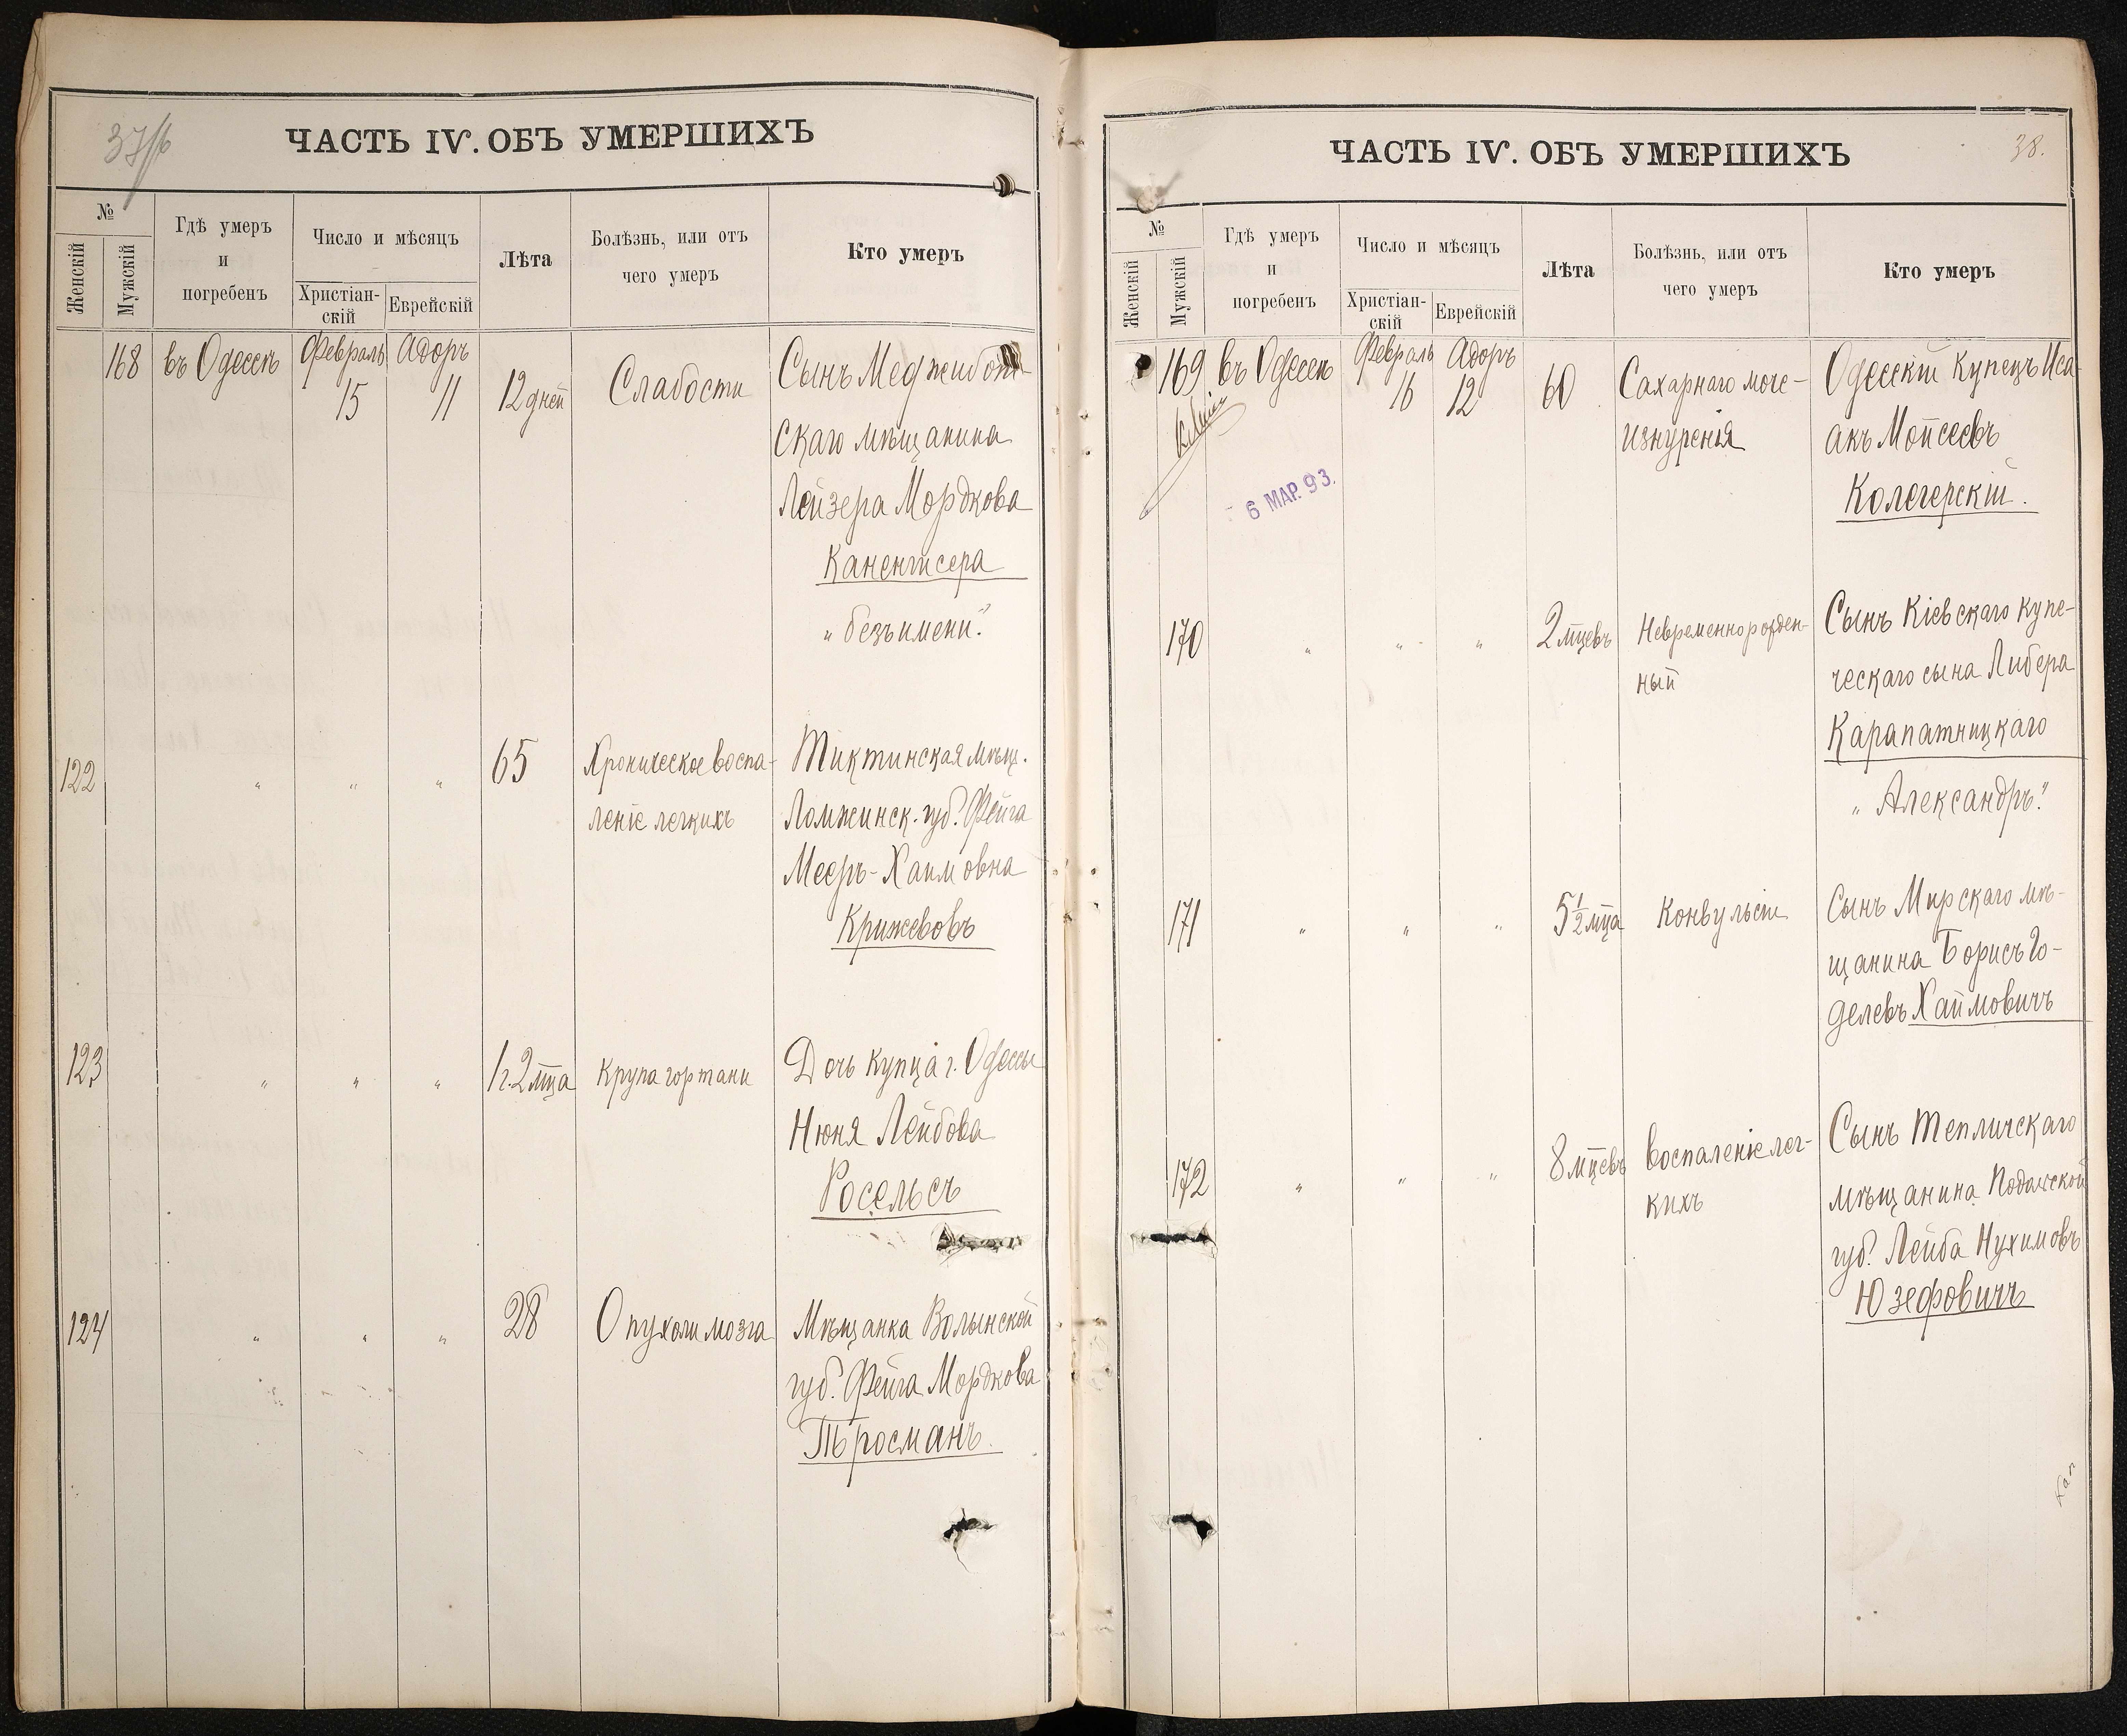 37/б
ЧАСТЬ IV. ОБЪ УМЕРШИХЪ
№
Женскій
Мужскій
Гдѣ умеръ
и
погребенъ
Число и мѣсяцъ
Христіан-
скій
Еврейскій
Лѣта
Болѣзнь, или отъ
чего умеръ
Кто умеръ
168 въ Одессѣ Февраль Адоръ
15 11 12 дней Слабости Сынъ Меджибож-
скаго мѣщанина
Лейзера Мордкова
Каненгисера
„безъимени."
122 " " " 65 Хроническое воспа-
леніе легкихъ
Тиктинская мѣщ.
Ломжинск. губ. Фейга
Мееръ-Хаимовна
Крижевовъ
123 " " " 1 г. 2 мца Крупа гортани Дочь купца г. Одессы
Нюня Лейбова
Росельсъ
124 " " " 28 Опухоли мозга Мѣщанка Волынской
губ. Фейга Мордкова
Тросманъ.
38.
ЧАСТЬ IV. ОБЪ УМЕРШИХЪ
№
Женскій
Мужскій
Гдѣ умеръ
и
погребенъ
Число и мѣсяцъ
Христіан-
скій
Еврейскій
Лѣта
Болѣзнь, или отъ
чего умеръ
Кто умеръ
169 въ Одессѣ Февраль Адоръ
16 12 60 Сахарнаго моче-
изнуренія
Одесскій купецъ Иса-
акъ Мойсеевъ
Колегерскій.
6 МАР. 93.
170 " " " 2 мцевъ Невременнорожден-
ный
Сынъ Кіевскаго купе-
ческаго сына Либера
Карапатницкаго
„Александръ."
171 " " " 5 1/2 мца Конвульсіи Сынъ Мирскаго мѣ-
щанина Борисъ Го-
делевъ Хаймовичъ
172 " " " 8 мцевъ Воспаленіе лег-
кихъ
Сынъ Тепличскаго
мѣщанина Подольской
губ. Лейба Нухимовъ
Юзефовичъ